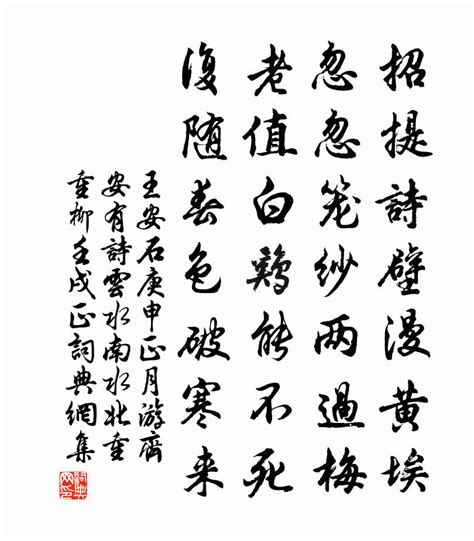 招提詩壁漫黄埃
忽忽笼纱两過梅
老值白鶏能不死
復随春色破寒来
王安石庚申正月游齊
安有詩雲水南水北重
重柳壬戌正詞典網集